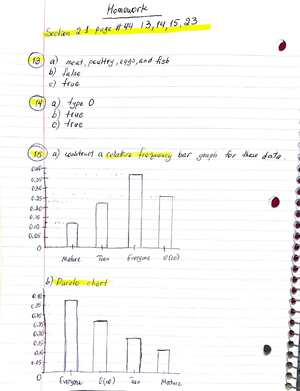 Homework
Section 2.1 page #44 13, 14, 15, 23
13 a) meat, poultry, eggs, and fish
b) false
c) true
14 a) type O
b) true
c) true
15 a) construct a relative frequency bar graph for these data.
0.40
0.35
0.30
0.25
0.20
0.15
0.10
0.05
0
Mature Teen Everyone E(10)
b) Pareto chart
0.40
0.35
0.30
0.25
0.20
0.15
0.10
0.05
Everyone E(10) Teen Mature